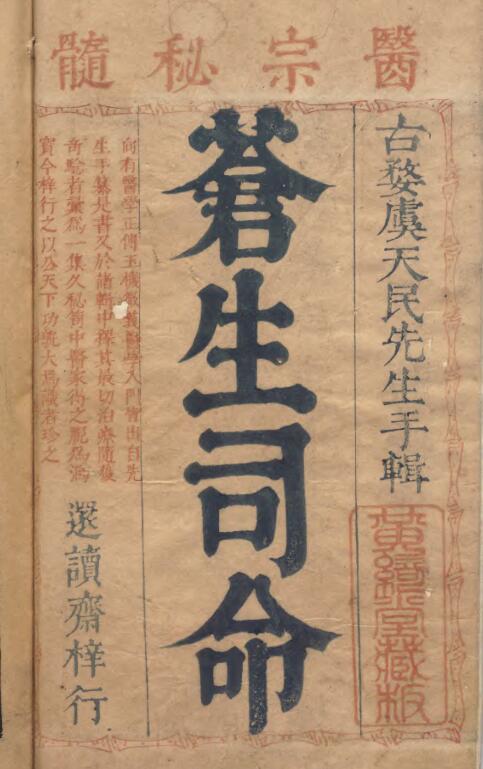 醫宗秘髓
古婺虞天民先生手輯
蒼生司命
向有醫學正傳玉機微義醫學入門皆出自先
生手纂是書又於諸輯中探其最切治療隨獲
奇驗者彙爲一集久秘笥中醫家得之
寶今梓行之以公天下功號大爲識者珍之
還讀齋梓行
藏板